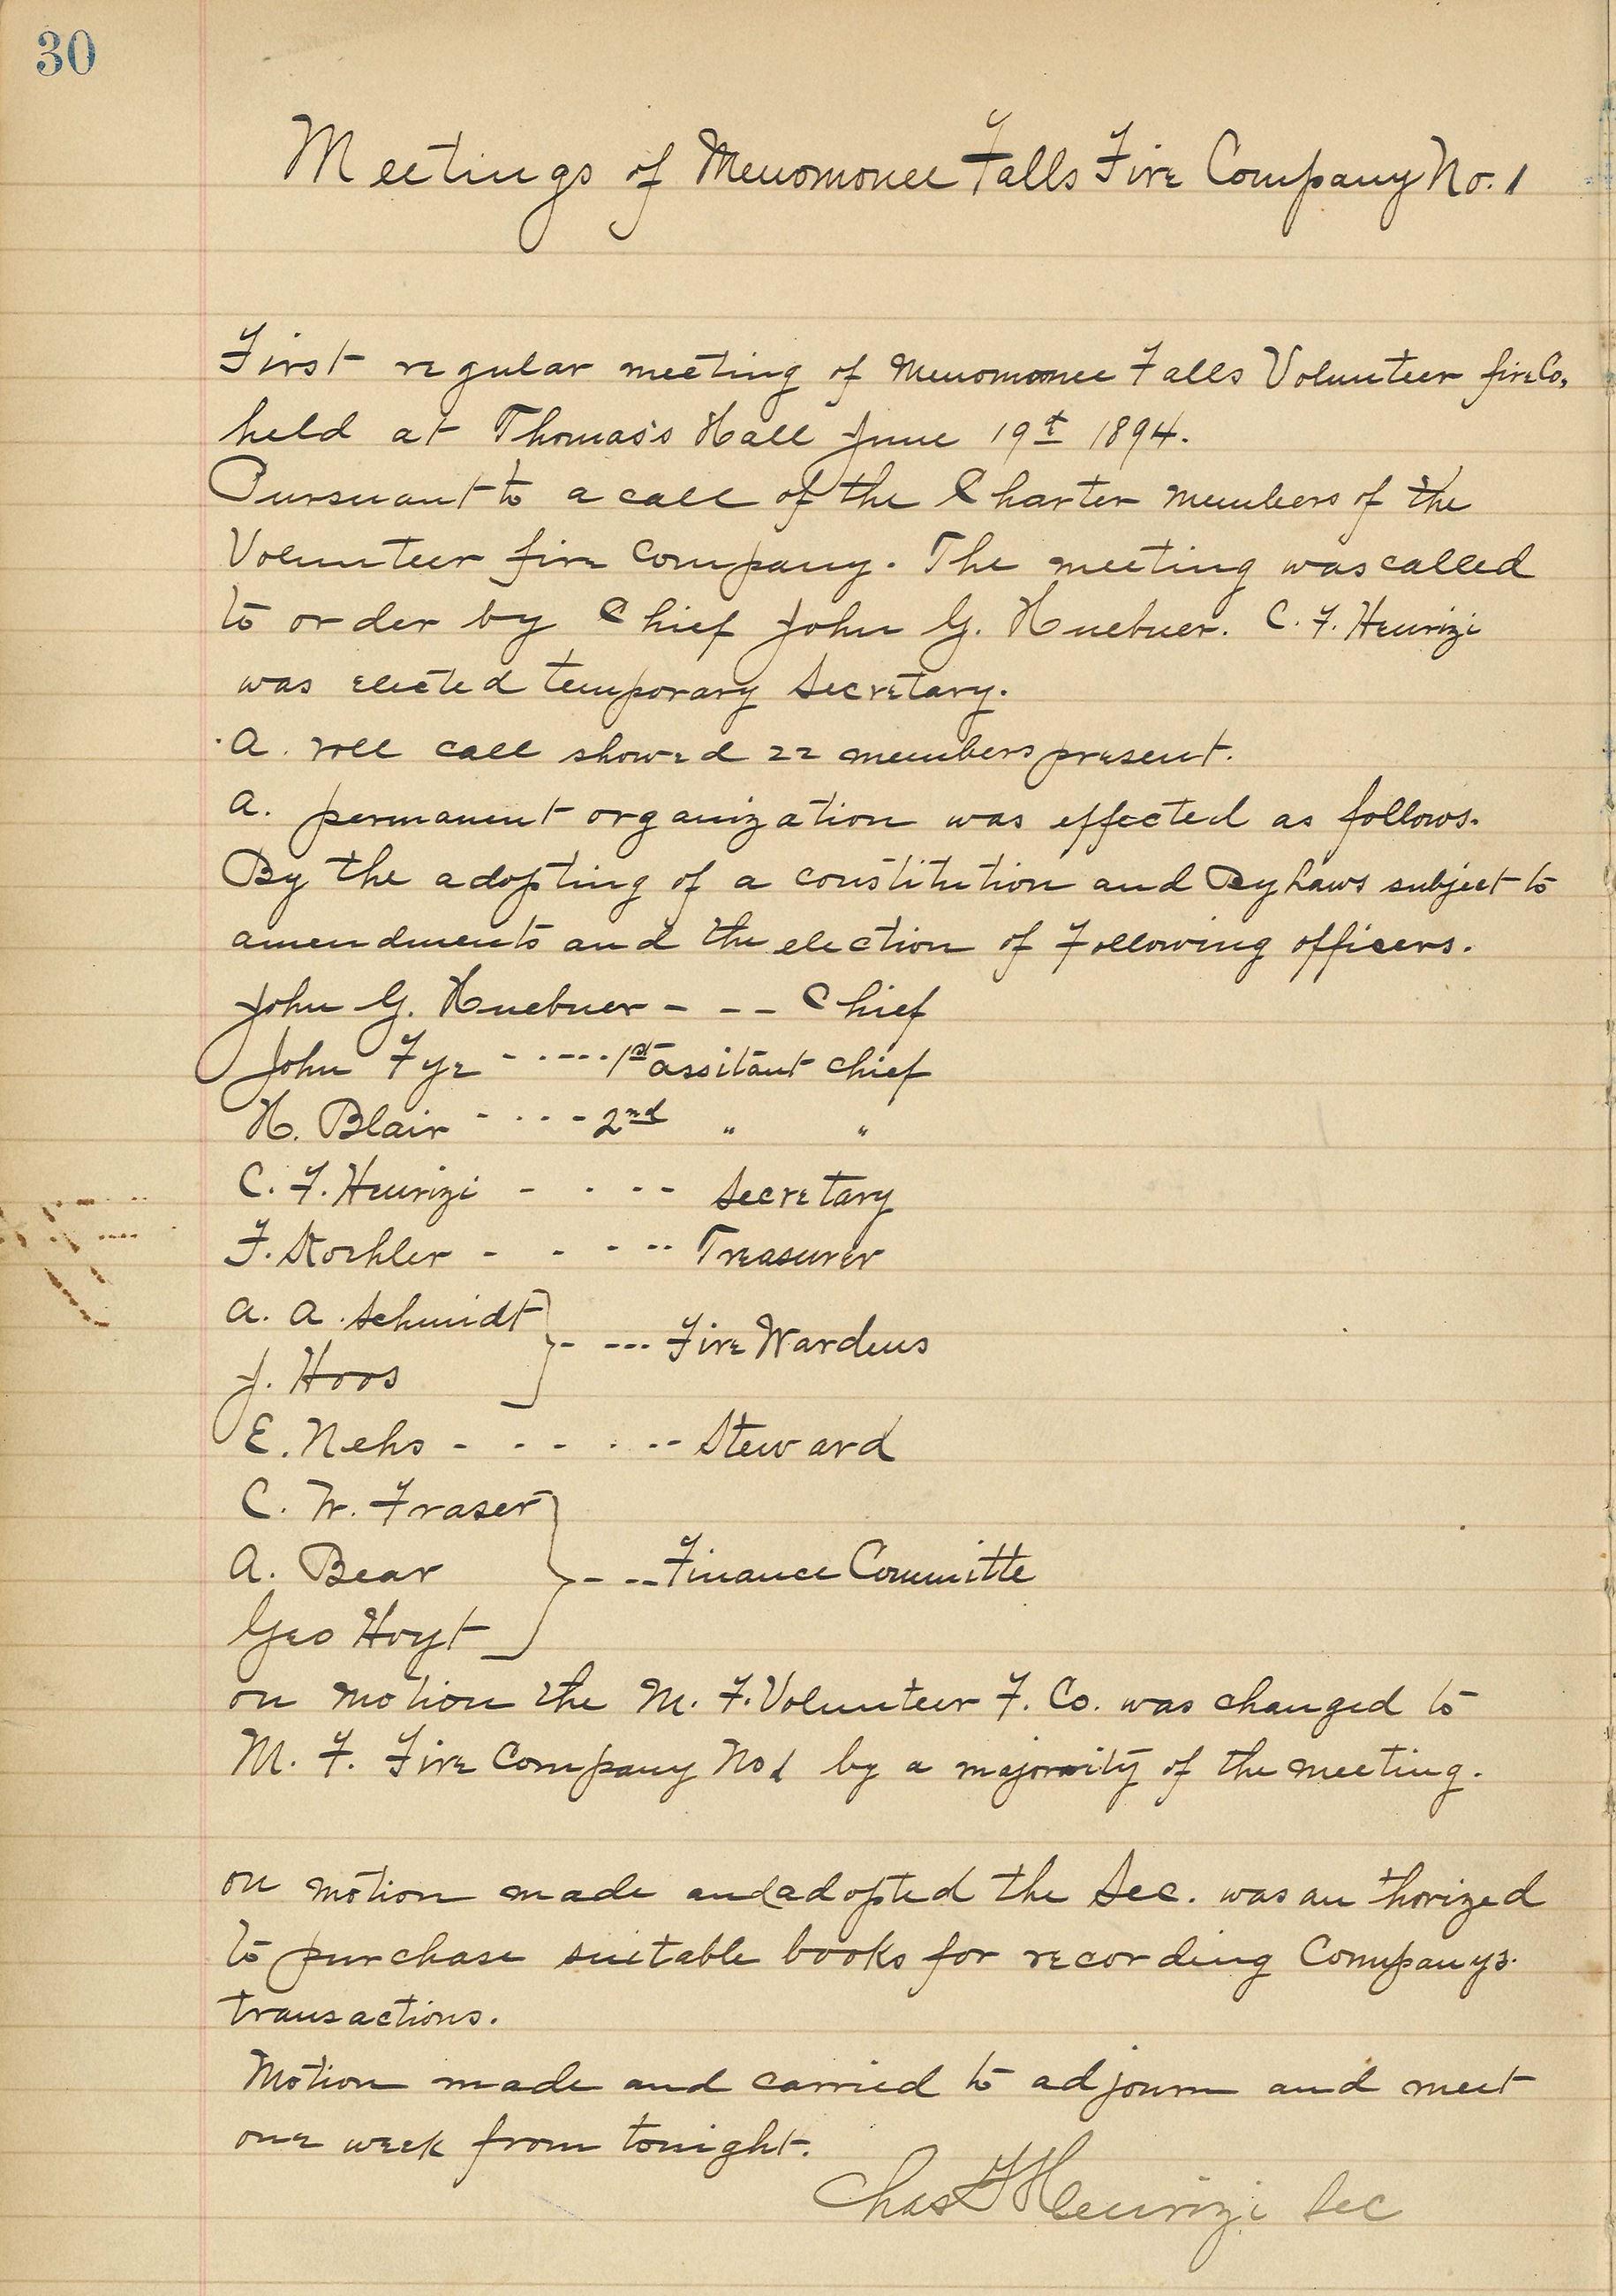 30
Meetings of Menomonee Falls Fire Company No. 1
First regular meeting of Menomonee Falls Volunteer fire Co,
held at Thomas's Hall June 19t 1894.
Pursuant to a call of the Charter members of the
Volunteer fire Company. The meeting was called
to order by Chief John G. Huebner. C. F. Henrizi
was elected temporary Secretary.
A. roll call showed 22 members present.
A. permanent organization was effected as follows.
By the adopting of a constitution and By Laws subject to
amendments and the election of Following officers.
John G. Huebner - - - Chief
John Fye - - - - - 1st assitant chief
H. Blair - - - - 2nd " "
C. F. Henrizi - - - - Secretary
F. Koehler - - - - - Treasurer
A. A. Schmidt
- - - - Fire Wardens
J. Hoos
E. Nehs - - - - - - Steward
C. W. Fraser
A. Bear - - - Finance Committe
Geo Hoyt
on motion the M. F. Volunteer F. Co. was changed to
M. F. Fire Company No 1 by a majority of the meeting.
on motion made and adopted the Sec. was authorized
to purchase suitable books for recording Companys.
transactions.
Motion made and carried to adjourn and meet
one week from tonight.
Chas F Henrizi Sec